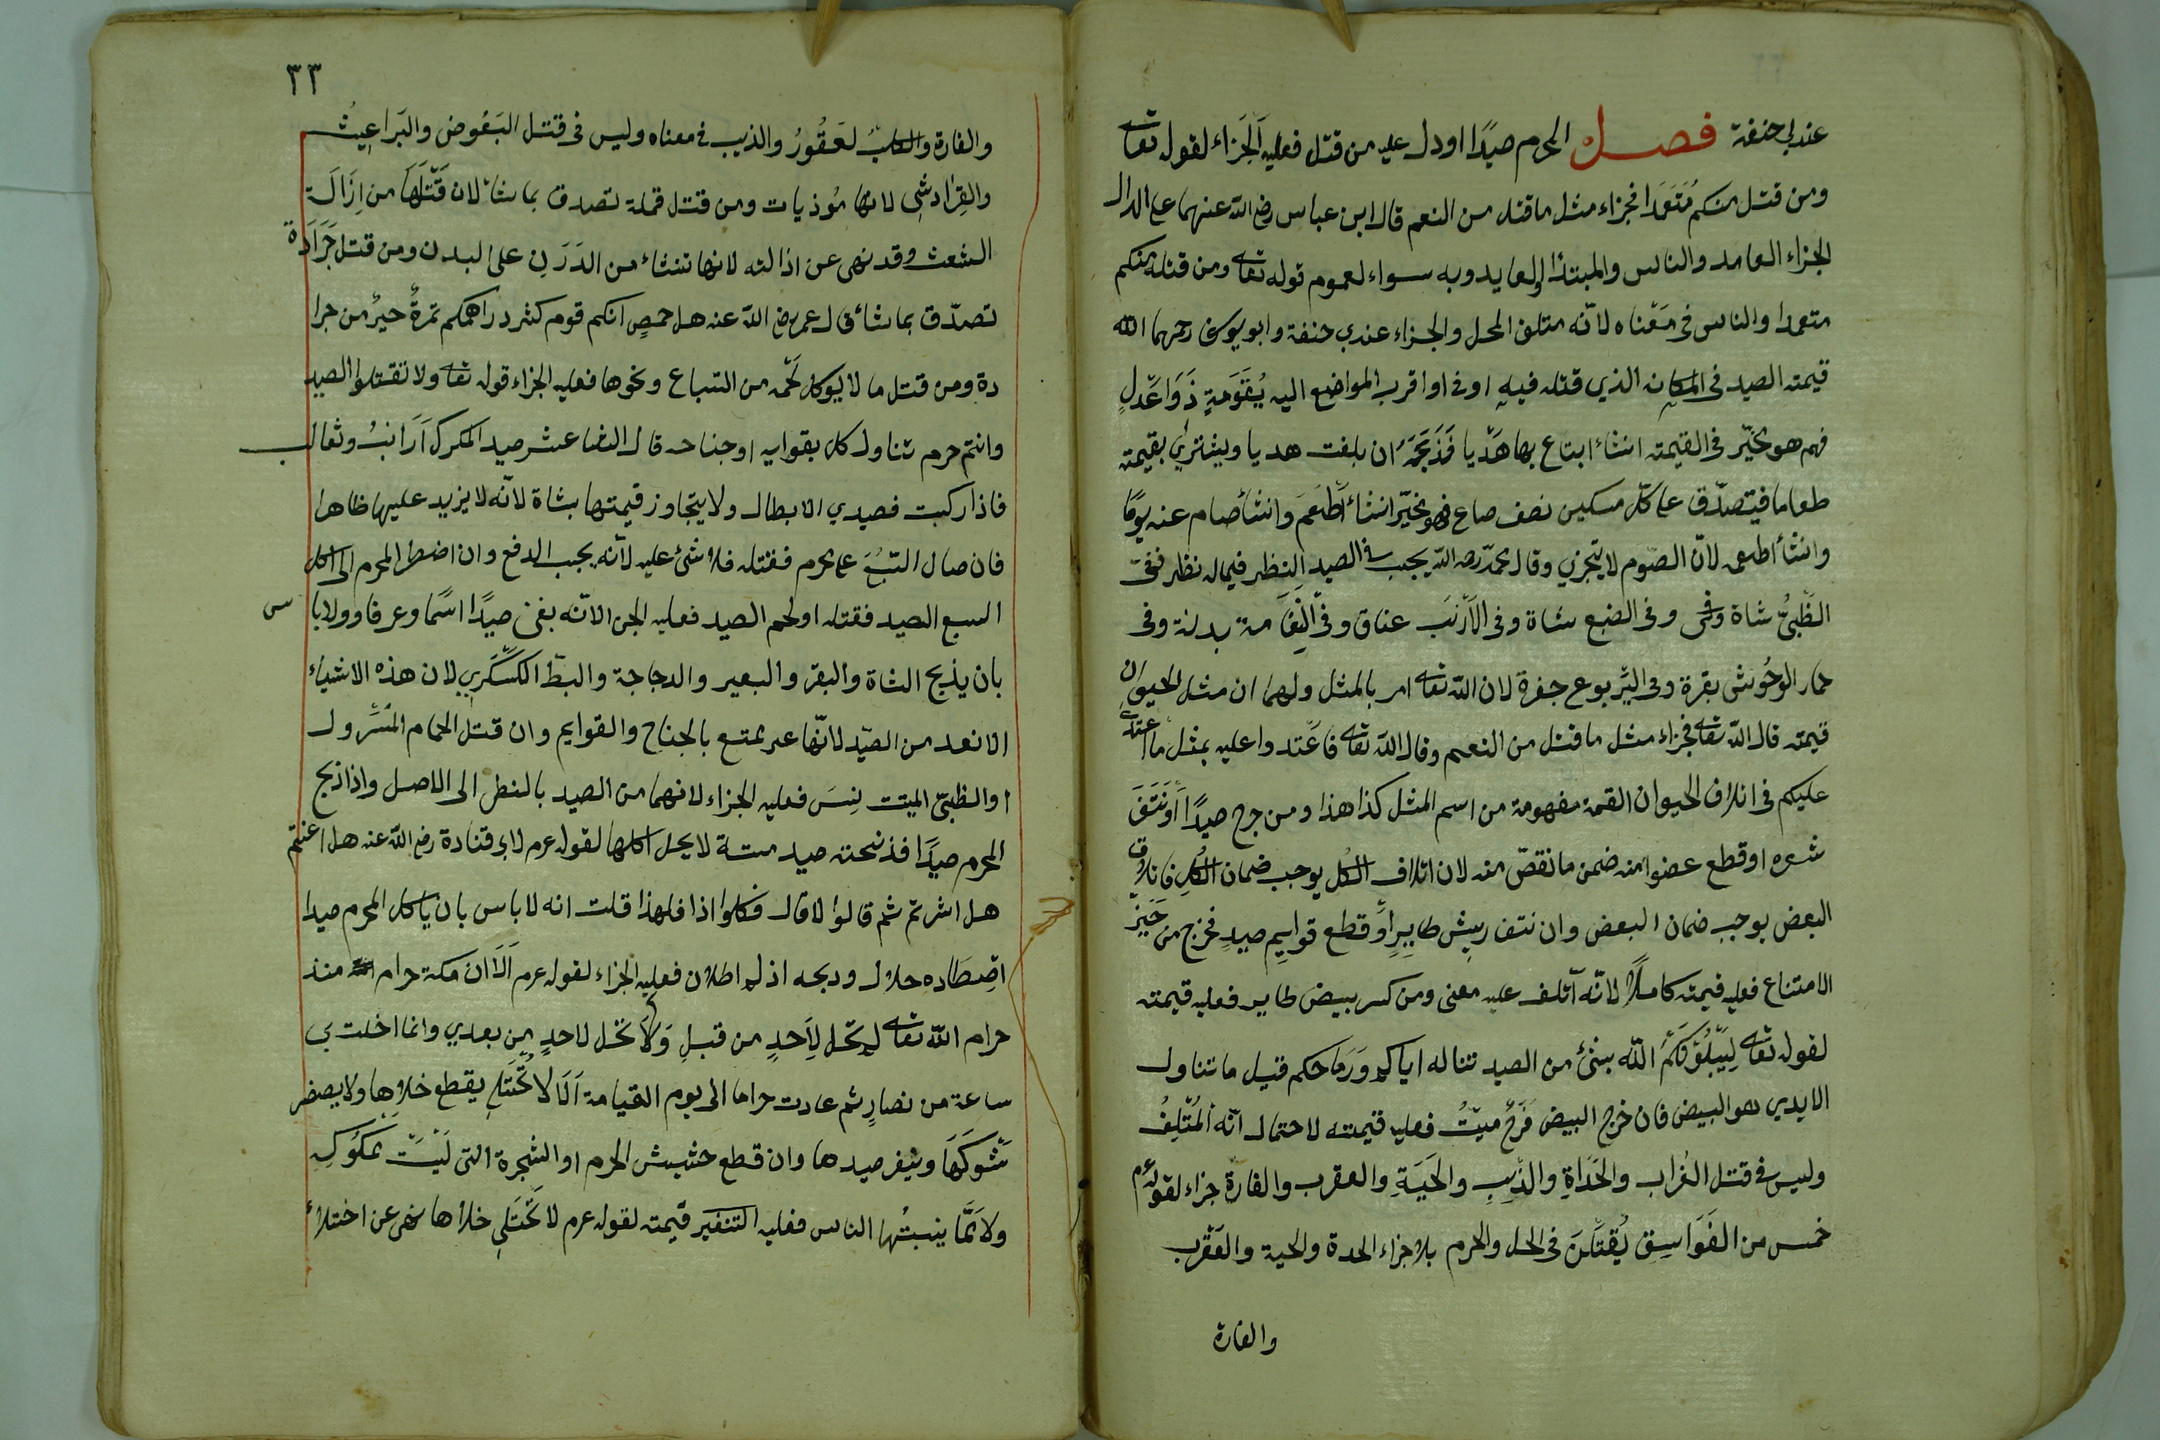 عند بى حنفة فصل المحرم صيدًا اودل عليه من قتل فعليه الجزاء لقوله تعالى
ومن قتل منكم مُتَعمَدا فجزاء مثل ما قتل من النعم قال ابن عباس رضى الله عنهما على الدال
الجزاء العامد والناس والمبتدا والعايد وبه سواء لعموم قوله تعالى ومن قتله منكم
متعمدا والناس فى مَعْناه لانّه متلف المحل والجزاء عند بى حنفة وابو يوسف رحمهما الله
قيمته الصيد فى المكان الذي قتله فيه او فى اوا قرب المواضع اليه يُقَوّمةٍ ذَوَا عَدْلٍ
فهم هو مخيّر فى القيمته انشاء ابتاع بها هَدْيا فَذَبَحَهَ ان بلغت هديا ويشتري بقيمته
طعاما فيتصدّق على كلّ مسكين نصف صاع فهو مخيّر انشاء أَطْعَمَ وانشأ صام عنه يومًا
وانشأ اطعم لانّ الصّوم لا يتجزي وقال محمّد رحمه الله يجب فى الصيد النظِر فيماله نظر ففى
الظّبىُّ شاة وفى وفى الضبع شاة وفى الأرْنبَ عناق وفى النعَامة بدنة وفى
حمار الوحُوش بقرة وفى اليَربوع جفرة لان الله تعالى امر بالمثل ولهما ان مثل الحيوان
قيمته قال الله تعالى فجزاء مثل ما قتل من النعم وقال الله تعالى فاعْتدوا عليه بمثل ما اعتدى
عليكم فى اتلاف الحيوان القمة مفهومة من اسم المثل كذا هذا ومن جرح صيدًا أو نَتَفَ
شعره او قطع عضوا منه ضمن ما نقصّ منه لان اتلاف الكل يوجب ضمان الكُلِ فاتلاف
البعض يوجب ضمان البعض وان نتف ريش طايِرٍ أو قطع قوايِمِ صيدٍ فخرج من حَيّزِ
الامتناع فعليه قيمته كاملًا لانّه أتلف عليه معنى ومن كسر بيض طاير فعليه قيمته
لقوله تعالى لِيَبْلُوَنّكَمُ الله بشئ من الصيد تناله ايديكم وَرَماحكم قيل ما تناول
الايدي هو البيض فان خرج البيض فَرَخٌ ميّتُ فعليه قيمته لاحتمال انّه المُتْلِفُ
وليس فى قتل الغُراب والحَدَاةِ والذّيبِ والحَيَةِ والعقرب والفارة جزاء لقوله عم
خمس من الفَوَاسِقِ يُقتَلَنَ فى الحل والحرم بلا جزاء الحدة والحية والعَقْرب
والفارة
٣٣
والفارة والكلبُ لعَقُورُ والذيب فى معناه وليس فى قتل البَعُوض والبَراغِيثُ
والقِرَاد شِى لانها مُوذيات ومن قتل قملة تصدق بما شاء لان قَتْلَهَا من إزَالَة
الشعث وقد نهى عن اذالته لانها تنشاء من الدَرَنِ على البدن ومن قتل جَرَادة
تصدّق بما شاء قال عمر رضى الله عنه هل حمصٍ انكم قوم كثر دراهمكم تمرةٌ خيرٌ من جرا
دة ومن قتل ما لا يوكل لَحْمه من السباع ونحوها فعليه الجزاء قوله تعالى ولا تقتلوا الصيد
وانتم حرم تناول كل بقوايه اوجناحه قال الشاعشر صيد المكرك أرَانبُ وثعالب
فاذا ركبت فصيدي الابطال ولا يتجاوز قيمتها بشاة لانّه لا يزيد عليها ظاهرا
فان صال السَّبُعَ على محرم فقتله فلا شئ عليه لانّه يجب الدفع وان اضطر المحرم الى اكل
السبع الصيد فقتله اولحم الصيد فعليه الجز الانّه بقى صيدًا اسمًا وعرفا وولابا س
بان يذبح الشاة والبقر والبعير والدجاجة والبطّ الكَسْكَرِي لان هذه الاشياء
لا نعد من الصيّد لانّها غير ممتع بالجناح والقوايم وان قتل الحمام المُسَرول
او الظبىّ الميتت نِسَ فعليه الجزاء لانهما من الصيد بالنطر الى الاصل واذا ذبح
المحرم صيدًا فذبحته صيد ميتة لا يحل اكلها لقوله عم لابي قتادة رضى الله عنه هل اعنتم
هل اشرتم ثم قالوا لا قال فكلوا اذا فلهذا قلت انه لا باس بان ياكل المحرم صيدا
اصِطَاده حلال ودبحه اذ لم اطلان فعليه الجزاء لقوله عم ألا ان مكة حرام منذ
حرام الله تعالى لم تحل لِأحدٍ من قبلِ وَلا تحل لاحدٍ من بعدي وانما احلت بي
ساعة من نصارٍ ثم عادت حراما الى يوم القيامة ألا لا تُخْتَلِ يقطع خلاها ولا يصفر
شَوكَهَا وينفر صيدها وان قطع حشيش الحرم او الشجرة التى لَيْسَتْ بمَمْلوُكِ
ولا مَمّا ينبتُها الناس فعليه التنفير قيمته لقوله عم لا تُخْتَلي خلاها نهى عن اختلاءُ